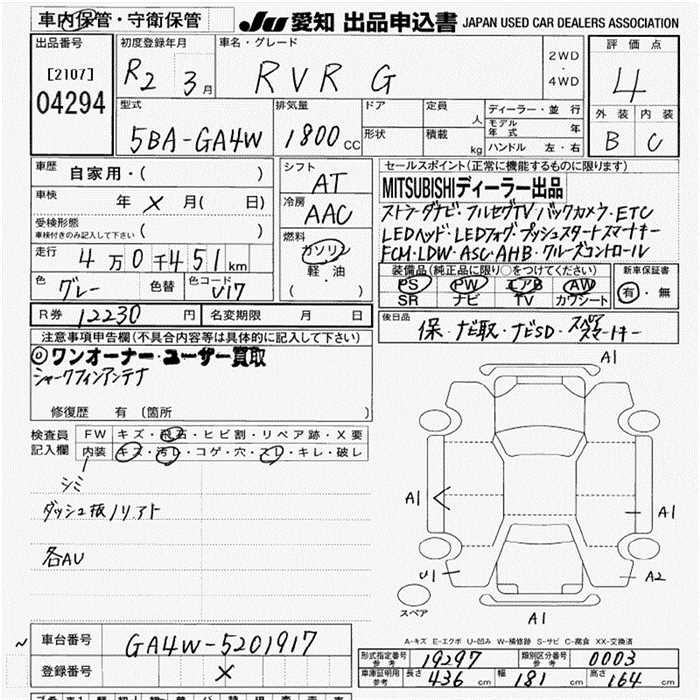 車内保管・守衛保管
JU 愛知 出品申込書 JAPAN USED CAR DEALERS ASSOCIATION
出品番号 [2107] 04294
初度登録年月 R2 3月
車名・グレード RVR G
2WD・4WD
評価点 4
外装 B 内装 C
型式 5BA-GA4W
排気量 1800 CC
ドア 形状
定員 人 積載 kg
ディーラー・並行
モデル年式 年
ハンドル 左・右
車歴 自家用・( )
車検 年 × 月( 日)
受検形態 車検付きのみ記入して下さい ( )
走行 4万0千451km
色 グレー 色替 色コード U17
シフト AT
冷房 AAC
燃料 ガソリン 軽油 ( )
セールスポイント(正常に機能するものに限ります)
MITSUBISHIディーラー出品
ストラーダナビ・フルセグTV バックカメラ・ETC
LEDヘッド・LEDフォグ・プッシュスタートスマートキー
FCM・LDW・ASC・AHB・クルーズコントロール
装備品(純正品に限り○をつけてください)
PS PW エアB AW
SR ナビ TV カワシート
新車保証書 有・無
R券 12230 円 名変期限 月 日
後日品 保・ナビ取・ナビSD・スペア スマートキー
注意事項申告欄(不具合内容等は具体的に記入して下さい)
◎ワンオーナー・ユーザー買取
シャークフィンアンテナ
修復歴 有 (箇所 )
検査員記入欄
FW キズ・飛石・ヒビ割・リペア跡・X要
内装 キズ・汚レ・コゲ・穴・スレ・キレ・破レ
シミ
ダッシュ板ノリアト
各AU
A1
A1
A1
U1
A2
A1
スペア
A-キズ E-エクボ U-凹み W-補修跡 S-サビ C-腐食 XX-交換済
車台番号 GA4W-5201917
登録番号 ×
形式指定番号 参考 19297 類別区分番号 参考 0003
車庫証明用 参考 長さ 436 cm 幅 181 cm 高さ 164 cm